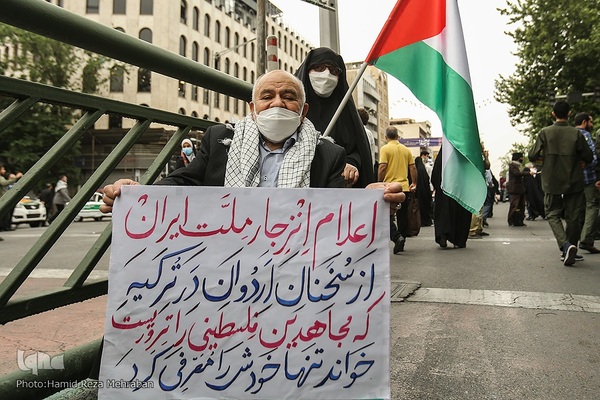 اعلام اِنْزِجار مِلَّت ایران
از سُخنان اَردوان دَر تُرکیه
که مجاهدین فلسطینی را تِروریست
خواند تنها خودش را معرفی کرد
iqna
Photo:Hamid Reza Mehraban